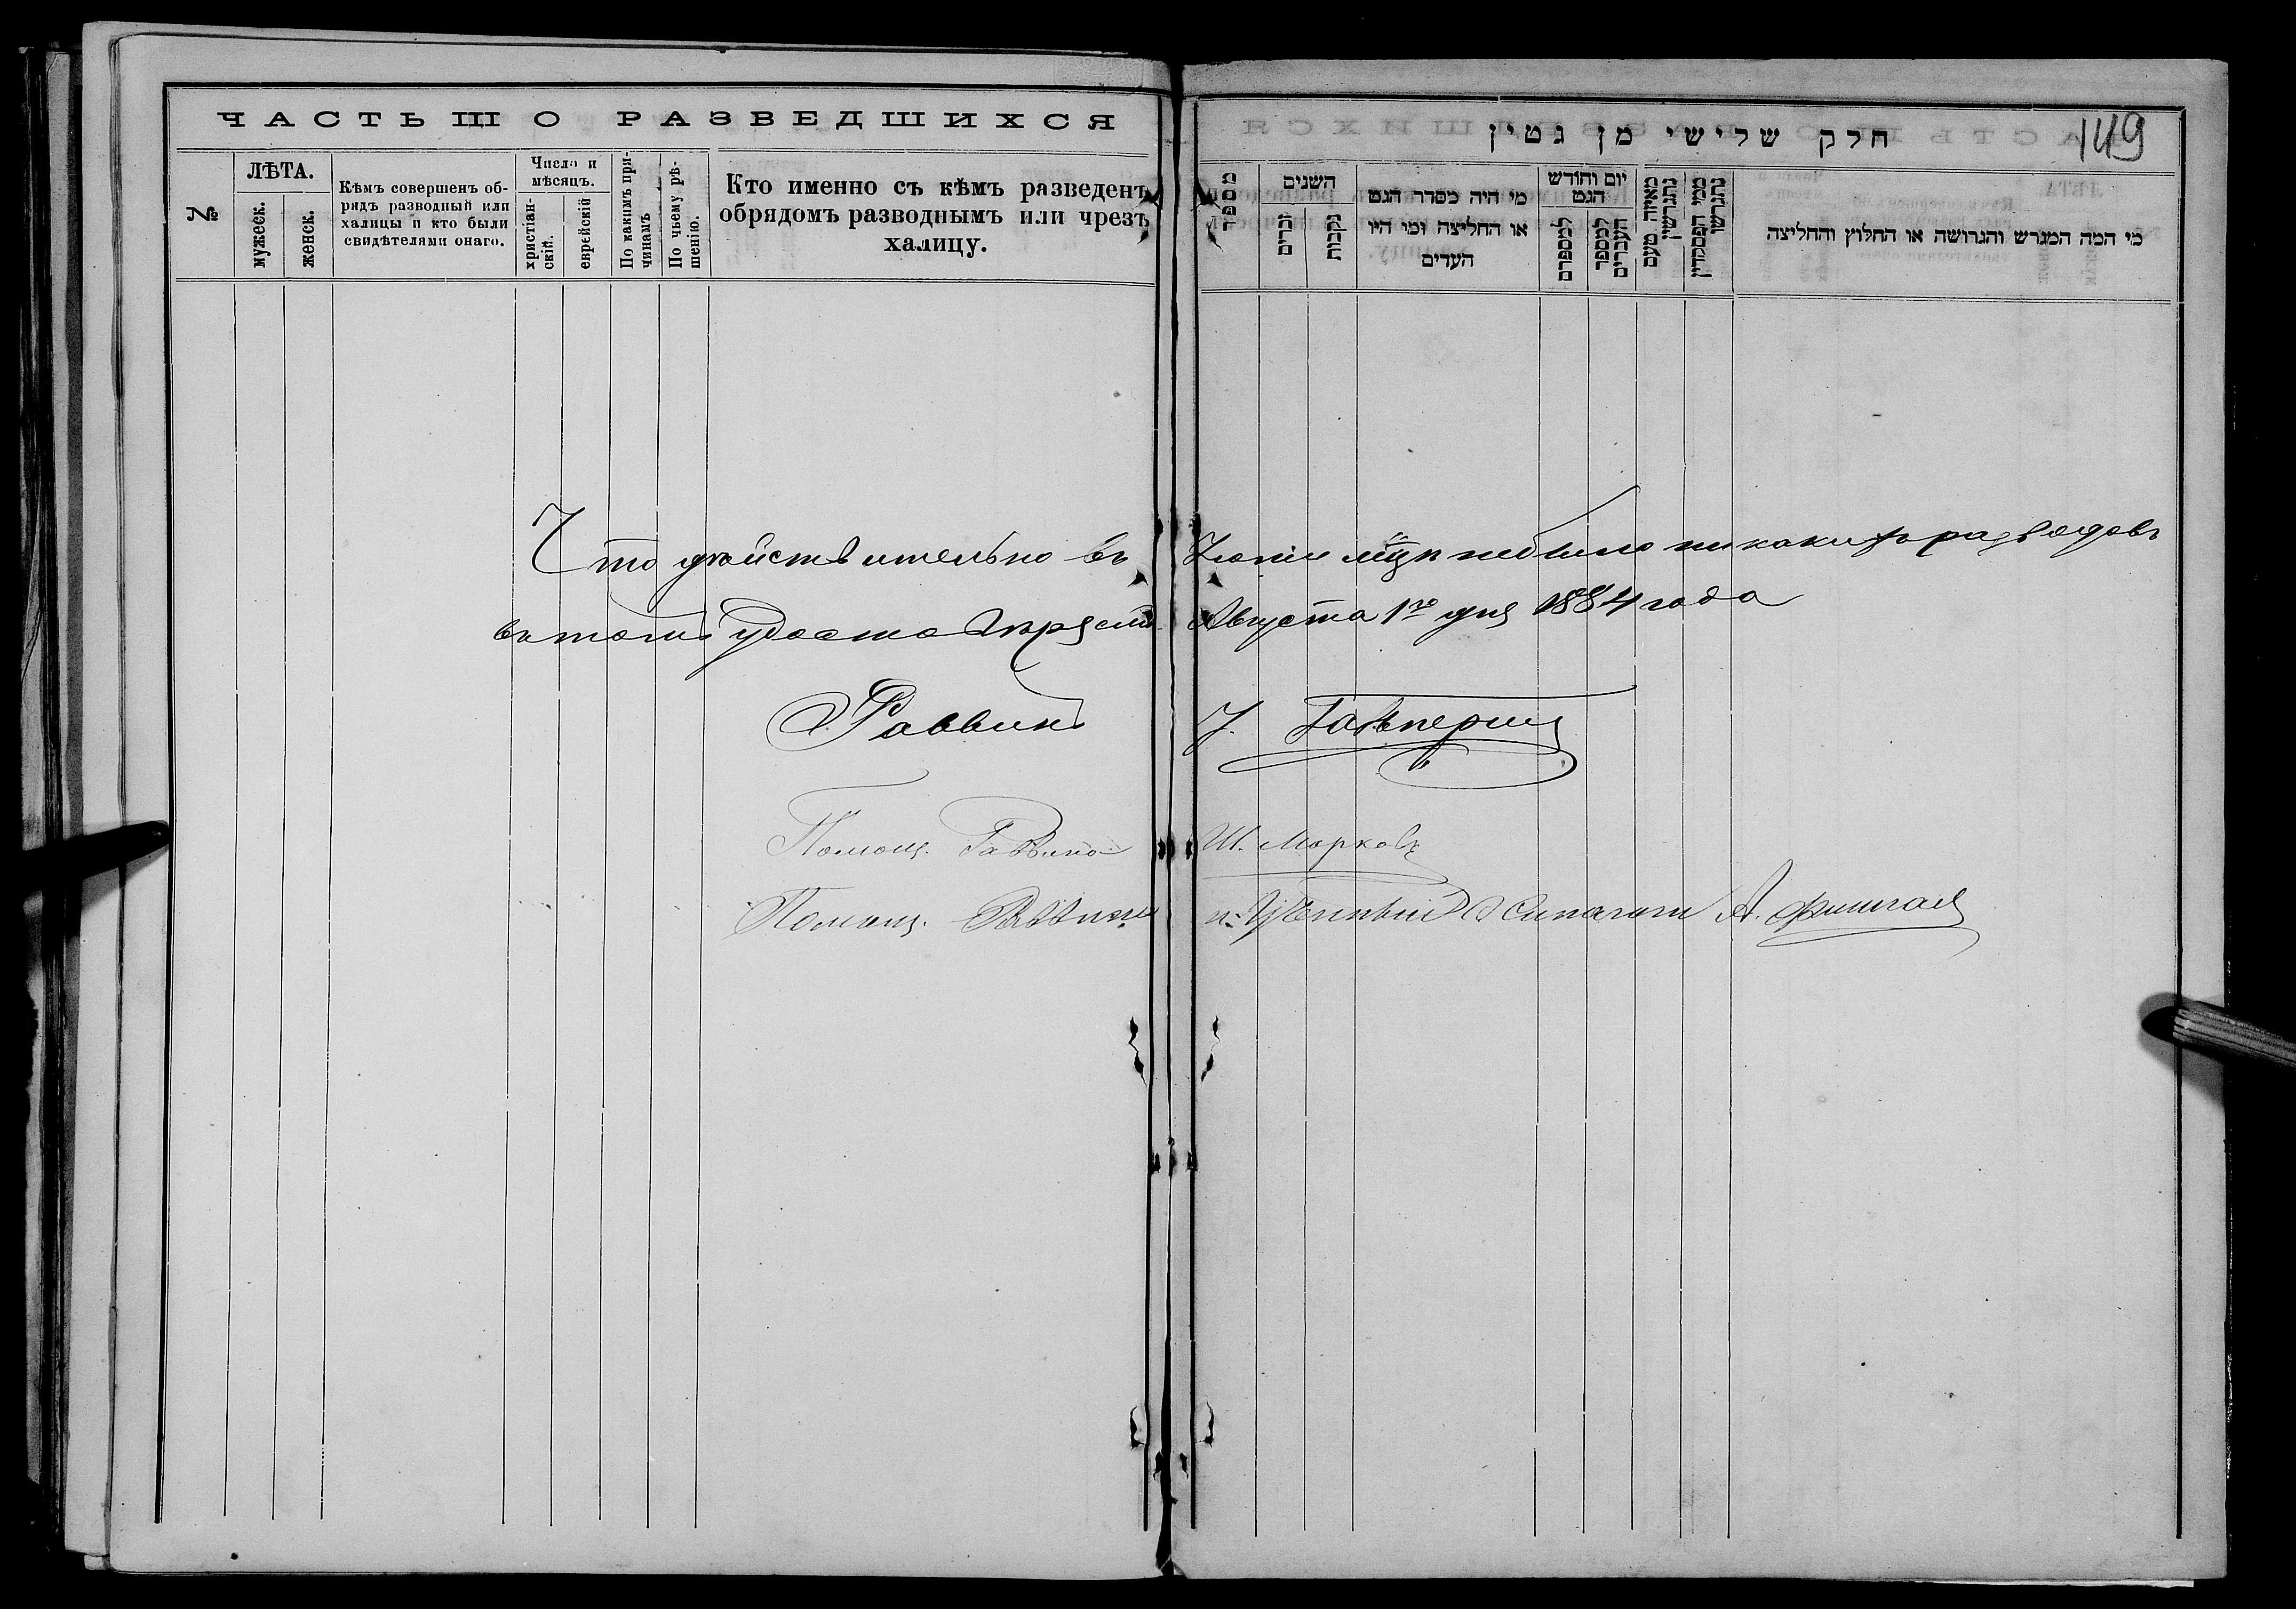 ЧАСТЬ III О РАЗВЕДШИХСЯ
№
ЛѢТА.
мужеск.
женск.
Кѣмъ совершенъ об-
рядъ разводный или
халицы и кто были
свидѣтелями онаго.
Число и
мѣсяцъ.
христіан-
скій.
еврейскій
По какимъ при-
чинамъ
По чьему рѣ-
шенію.
Кто именно съ кѣмъ разведенъ
обрядомъ разводнымъ или чрезъ
халицу.
149
חלק שלישי מן גטין
מספר
השנים
זכרים
נקבות
מי היה מסדר הגט
או החליצה ומי היו
העדים
יום וחודש
הגט
למספרם
למספר
העברים
מאיזה טעם
נתגרשו
מפי
נתגרשו
מי המה המגרש והגרושה או החלוץ והחליצה
Что дѣйствительно въ Іюлѣ м-цѣ небыло никакихъ разводовъ
въ томъ удостовѣряемъ Августа 1го дня 1884 года
Раввинъ Гальперинъ
Помощ. Раввина Ш. Марковъ
Помощ. Раввина и Ученый Синагоги А.